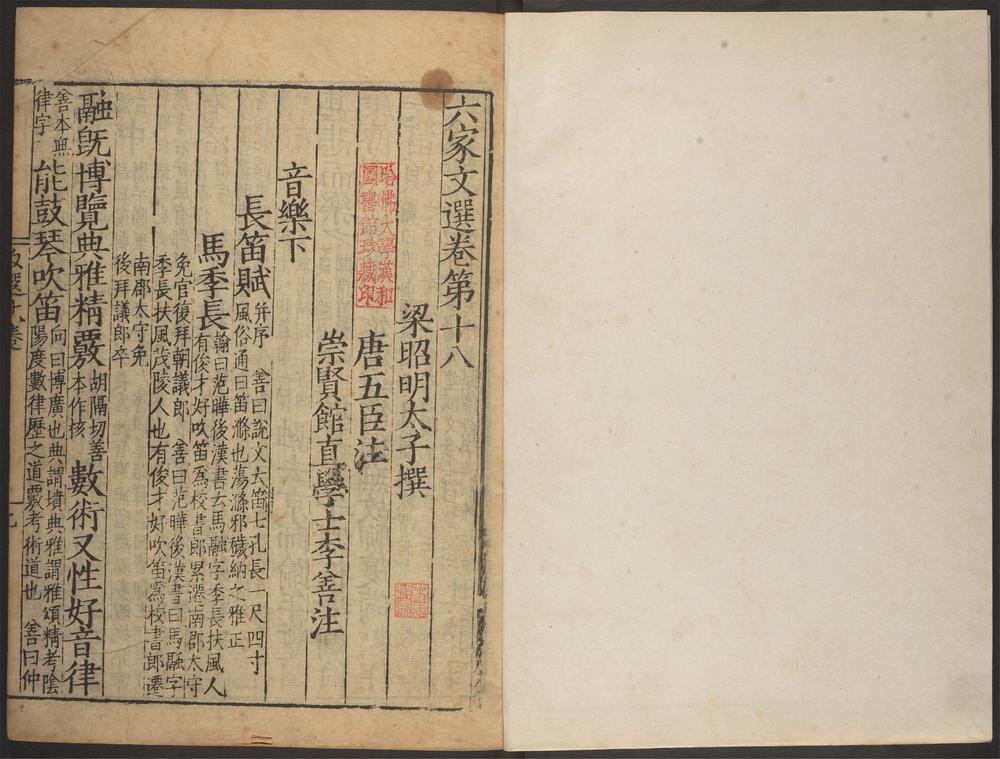 六家文選卷第十八
梁昭明太子撰
唐五臣注
崇賢館直學士李善注
塔佛大學漢和
圖書館珍藏印
音樂下
長笛賦并序
善曰說文大笛七孔長一尺四寸
風俗通曰笛滌也蕩滌邪穢納之雅正
馬季長
翰曰范曄後漢書云馬融字季長扶風人
有俊才好吹笛爲校書郎累遷南郡太守
免官復拜朝議郎 善曰范曄後漢書曰馬融字
季長扶風茂陵人也有俊才好吹笛爲校書郎遷
南郡太守免
後拜議郎卒
融旣博覽典雅精覈
胡隔切善
本作核
數術又性好音律
善本無
律字
能鼓琴吹笛
向曰博廣也典謂墳典雅謂雅頌精考陰
陽度數律歷之道覈考術道也 善曰仲